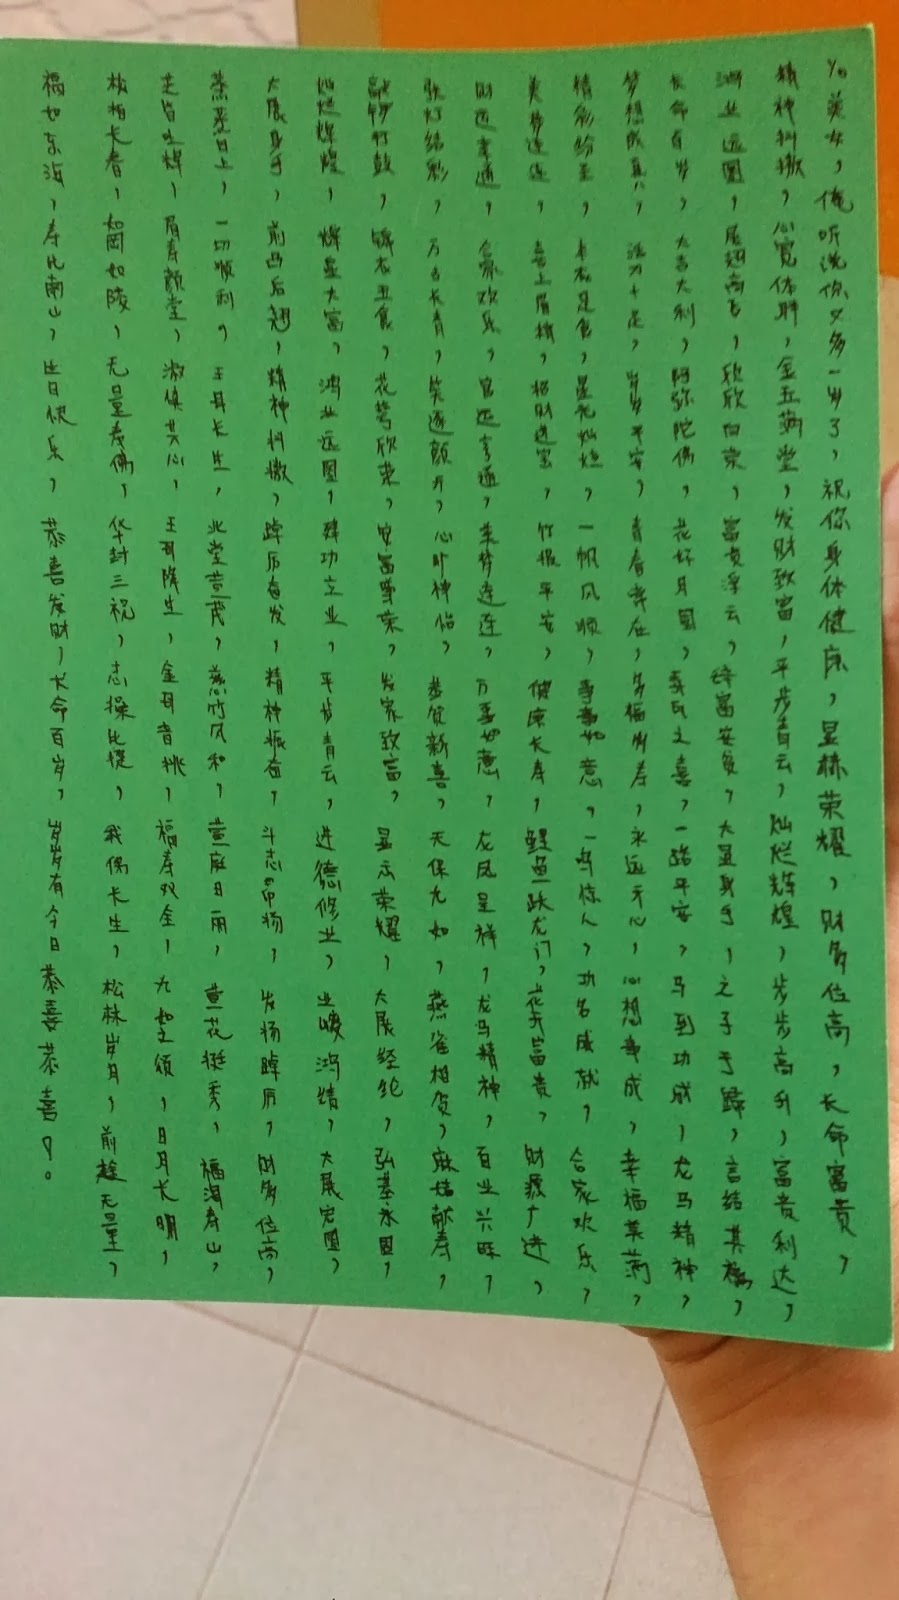 Yo 美女，俺听说你又多一岁了，祝你身体健康，显赫荣耀，财多位高，长命富贵，
精神抖擞，心宽体胖，金玉满堂，发财致富，平步青云，灿烂辉煌，步步高升，富贵利达，
鸿业远图，展翅高飞，欣欣向荣，富贵浮云，大显身手，之子于归，言结其褵，
长命百岁，大吉大利，阿弥陀佛，花好月圆，一路平安，马到功成，龙马精神，
梦想成真，活力十足，岁岁平安，青春常在，多福多寿，永远开心，心想事成，幸福美满，
精彩纷呈，丰衣足食，星光灿烂，一帆风顺，事事如意，一鸣惊人，功名成就，合家欢乐，
美梦连连，喜上眉梢，招财进宝，竹报平安，健康长寿，鲤鱼跃龙门，花开富贵，财源广进，
财运亨通，合家欢乐，官运亨通，美梦连连，万事如意，龙凤呈祥，龙马精神，百业兴旺，
张灯结彩，万古长青，笑逐颜开，心旷神怡，恭贺新喜，天保九如，燕雀相贺，麻姑献寿，
敲锣打鼓，锦衣玉食，花萼欣荣，安富尊荣，发家致富，显示荣耀，大展经纶，弘基永固，
灿烂辉煌，辉显大富，鸿业远图，建功立业，平步青云，进德修业，业峻鸿绩，大展宏图，
大展身手，前凸后翘，精神抖擞，踔厉奋发，精神振奋，斗志昂扬，发扬踔厉，财多位高，
蒸蒸日上，一切顺利，王母长生，北堂萱茂，慈竹风和，萱庭日丽，萱花挺秀，福海寿山，
芝眉生辉，眉寿颜堂，淑慎其心，王母降生，金母晋桃，福寿双全，九如之颂，日月长明，
松柏长春，如冈如陵，无量寿佛，华封三祝，志操比捷，我佛长生，松林岁月，前途无量，
福如东海，寿比南山，生日快乐，恭喜发财，长命百岁，岁岁有今日恭喜恭喜！。